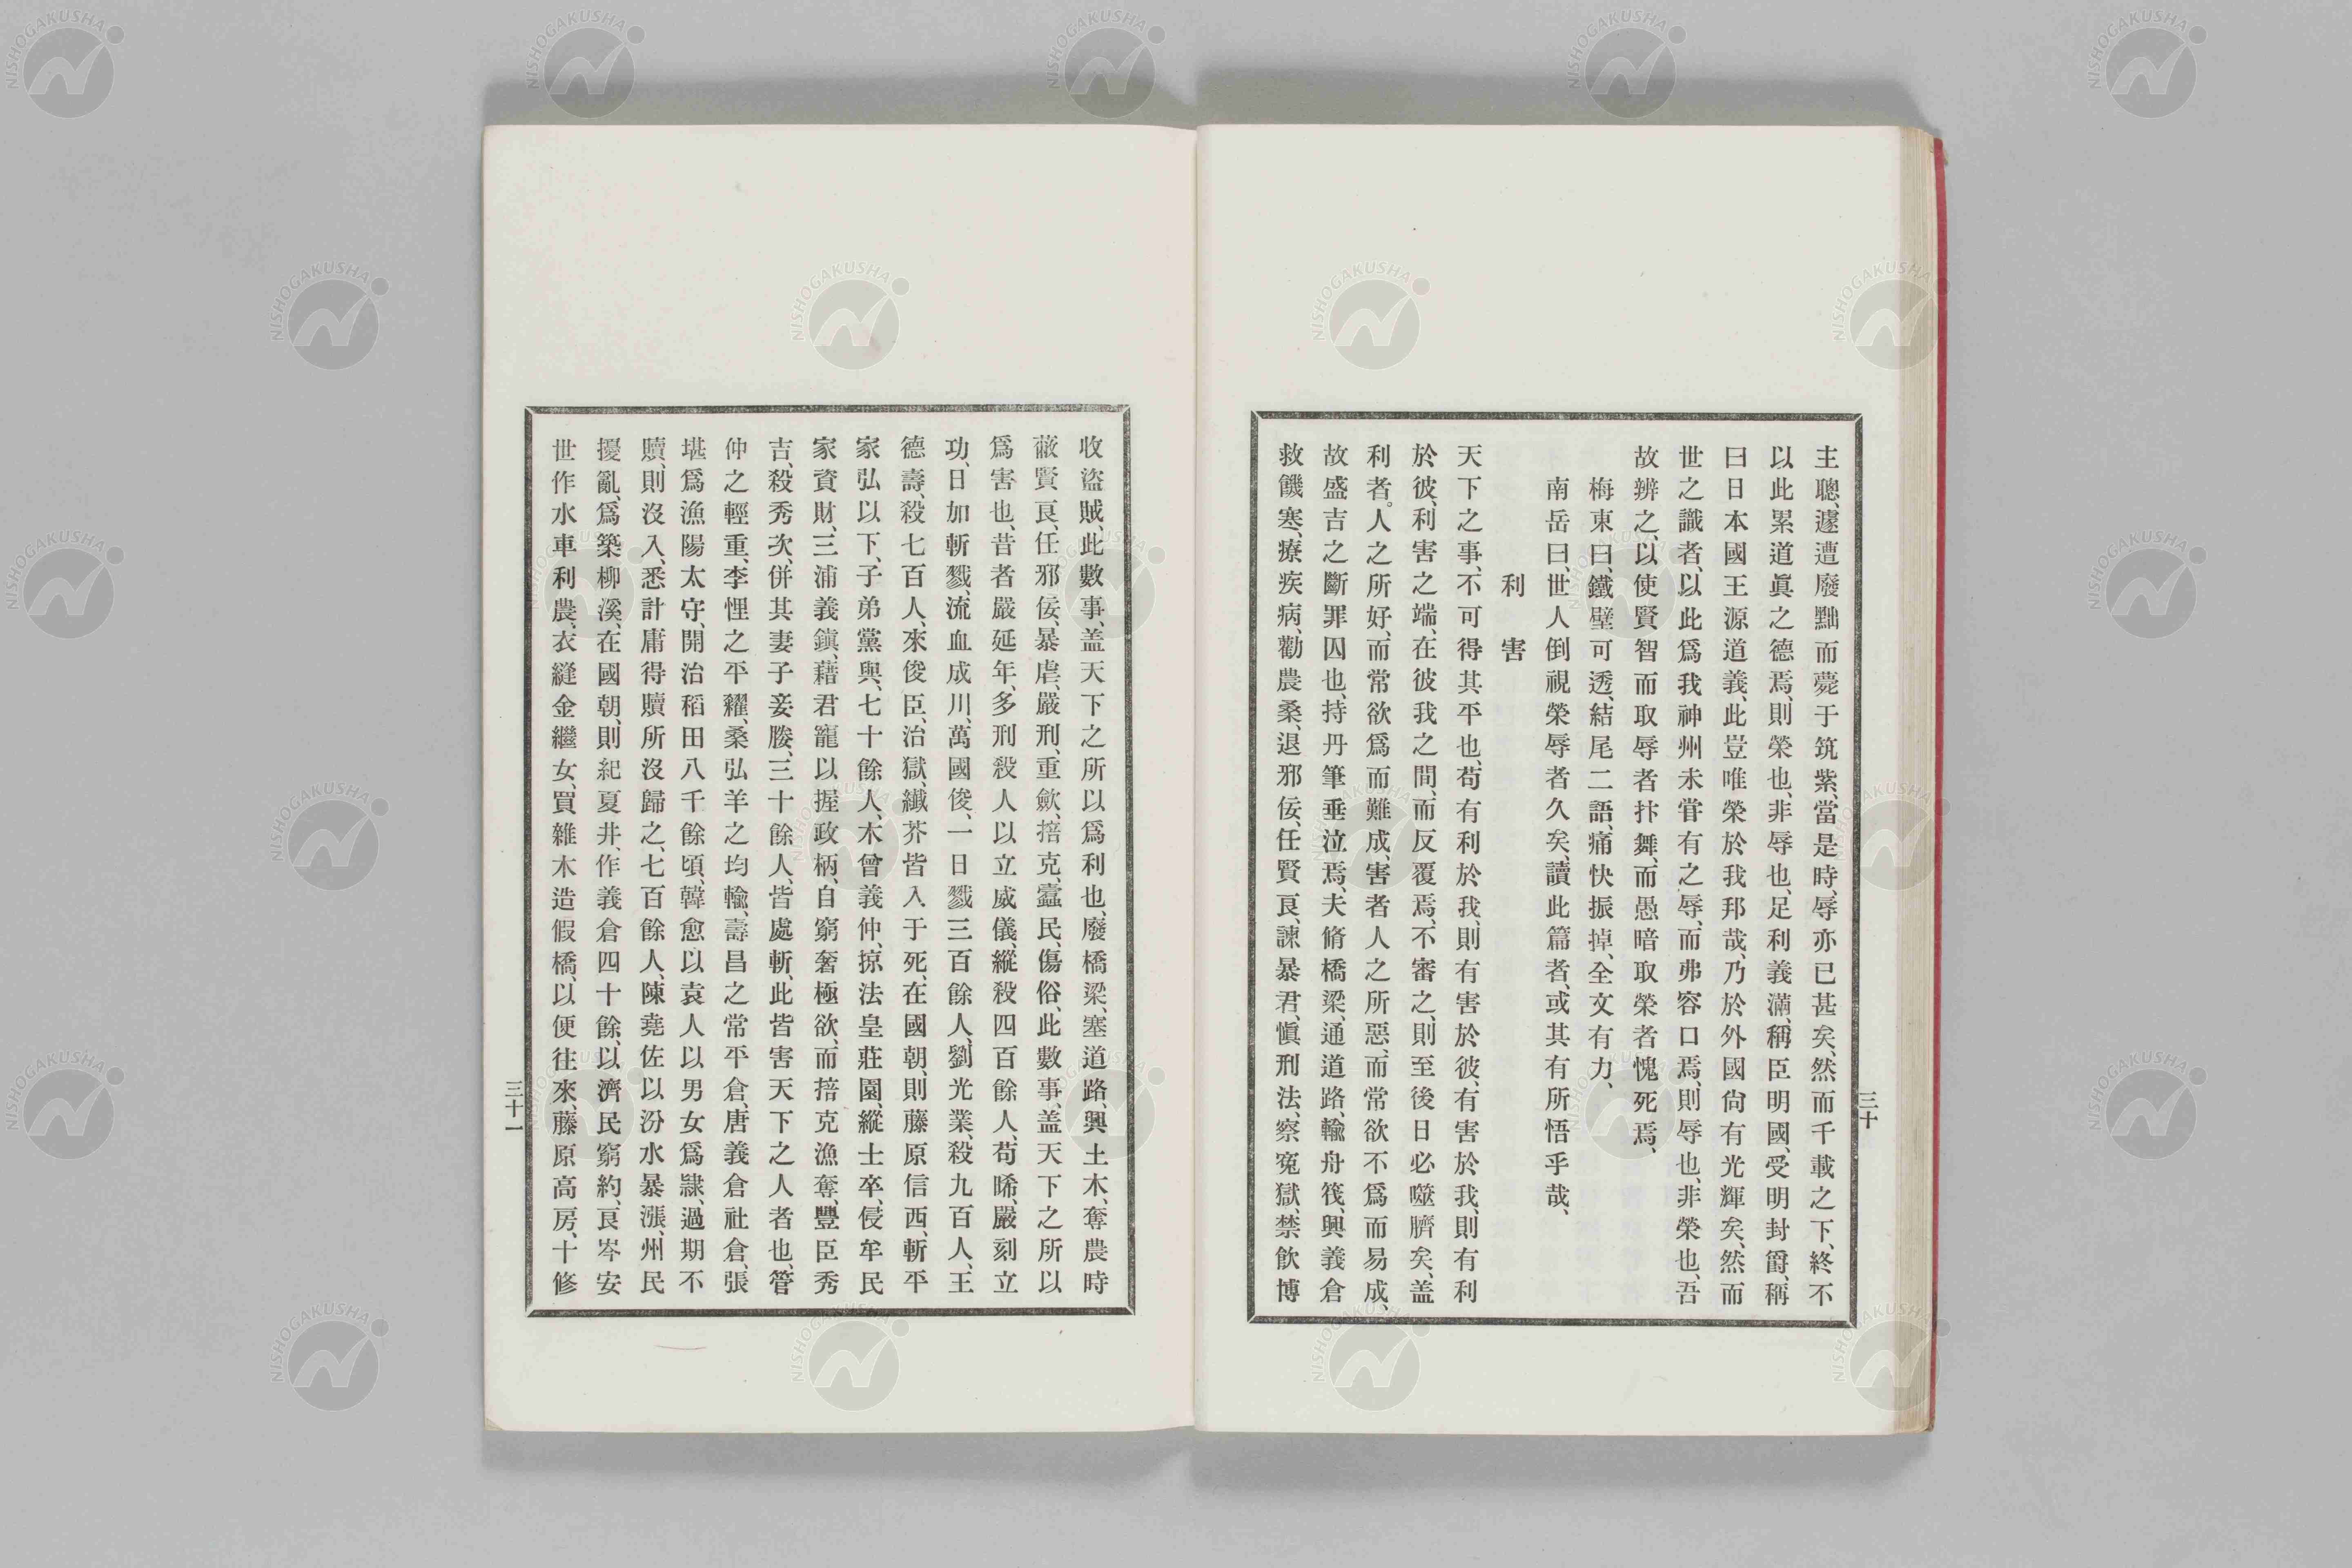 主聰、遽遭廢黜而薨于筑紫、當是時、辱亦已甚矣、然而千載之下、終不
以此累道眞之德焉、則榮也、非辱也、足利義滿、稱臣明國、受明封爵、稱
曰日本國王源道義、此豈唯榮於我邦哉、乃於外國尙有光輝矣、然而
世之識者、以此爲我神州未甞有之辱、而弗容口焉、則辱也、非榮也、吾
故辨之、以使賢智而取辱者抃舞、而愚暗取榮者愧死焉、
梅東曰、鐵壁可透、結尾二語、痛快振掉、全文有力、
南岳曰、世人倒視榮辱者久矣、讀此篇者、或其有所悟乎哉、
利害
天下之事、不可得其平也、苟有利於我、則有害於彼、有害於我、則有利
於彼、利害之端、在彼我之間、而反覆焉、不審之、則至後日必噬臍矣、盖
利者。人之所好、而常欲爲而難成、害者人之所惡、而常欲不爲而易成、
故盛吉之斷罪囚也、持丹筆垂泣焉、夫脩橋梁、通道路、輸舟筏、興義倉
救饑寒、療疾病、勸農桑、退邪佞、任賢良、諫暴君、愼刑法、察寃獄、禁飮博
三十
收盜賊、此數事、盖天下之所以爲利也、廢橋梁、塞道路、興土木、奪農時
蔽賢良、任邪佞、暴虐、嚴刑、重歛、掊克、蠧民、傷俗、此數事、盖天下之所以
爲害也、昔者嚴延年、多刑殺人以立威儀、縱殺四百餘人、苟晞、嚴刻立
功、日加斬戮、流血成川、萬國俊、一日戮三百餘人、劉光業、殺九百人、王
德壽、殺七百人、來俊臣、治獄、纖芥皆入于死、在國朝、則藤原信西、斬平
家弘以下、子弟黨與、七十餘人、木曾義仲、掠法皇莊園、縱士卒、侵牟民
家資財、三浦義鎭、藉君寵以握政柄、自窮奢極欲、而掊克漁奪、豐臣秀
吉、殺秀次、併其妻子妾媵、三十餘人、皆處斬、此皆害天下之人者也、管
仲之輕重、李悝之平糴、桑弘羊之均輸、壽昌之常平倉、唐義倉社倉、張
堪爲漁陽太守、開治稻田八千餘頃、韓愈以袁人以男女爲隷、過期不
贖、則沒入、悉計庸得贖所沒歸之、七百餘人、陳堯佐以汾水暴漲、州民
擾亂、爲築柳溪、在國朝、則紀夏井、作義倉四十餘、以濟民窮約、良岑安
世作水車利農、衣縫金繼女、買雜木造假橋、以便往來、藤原高房、十修
三十一
NISHOGAKUSHA